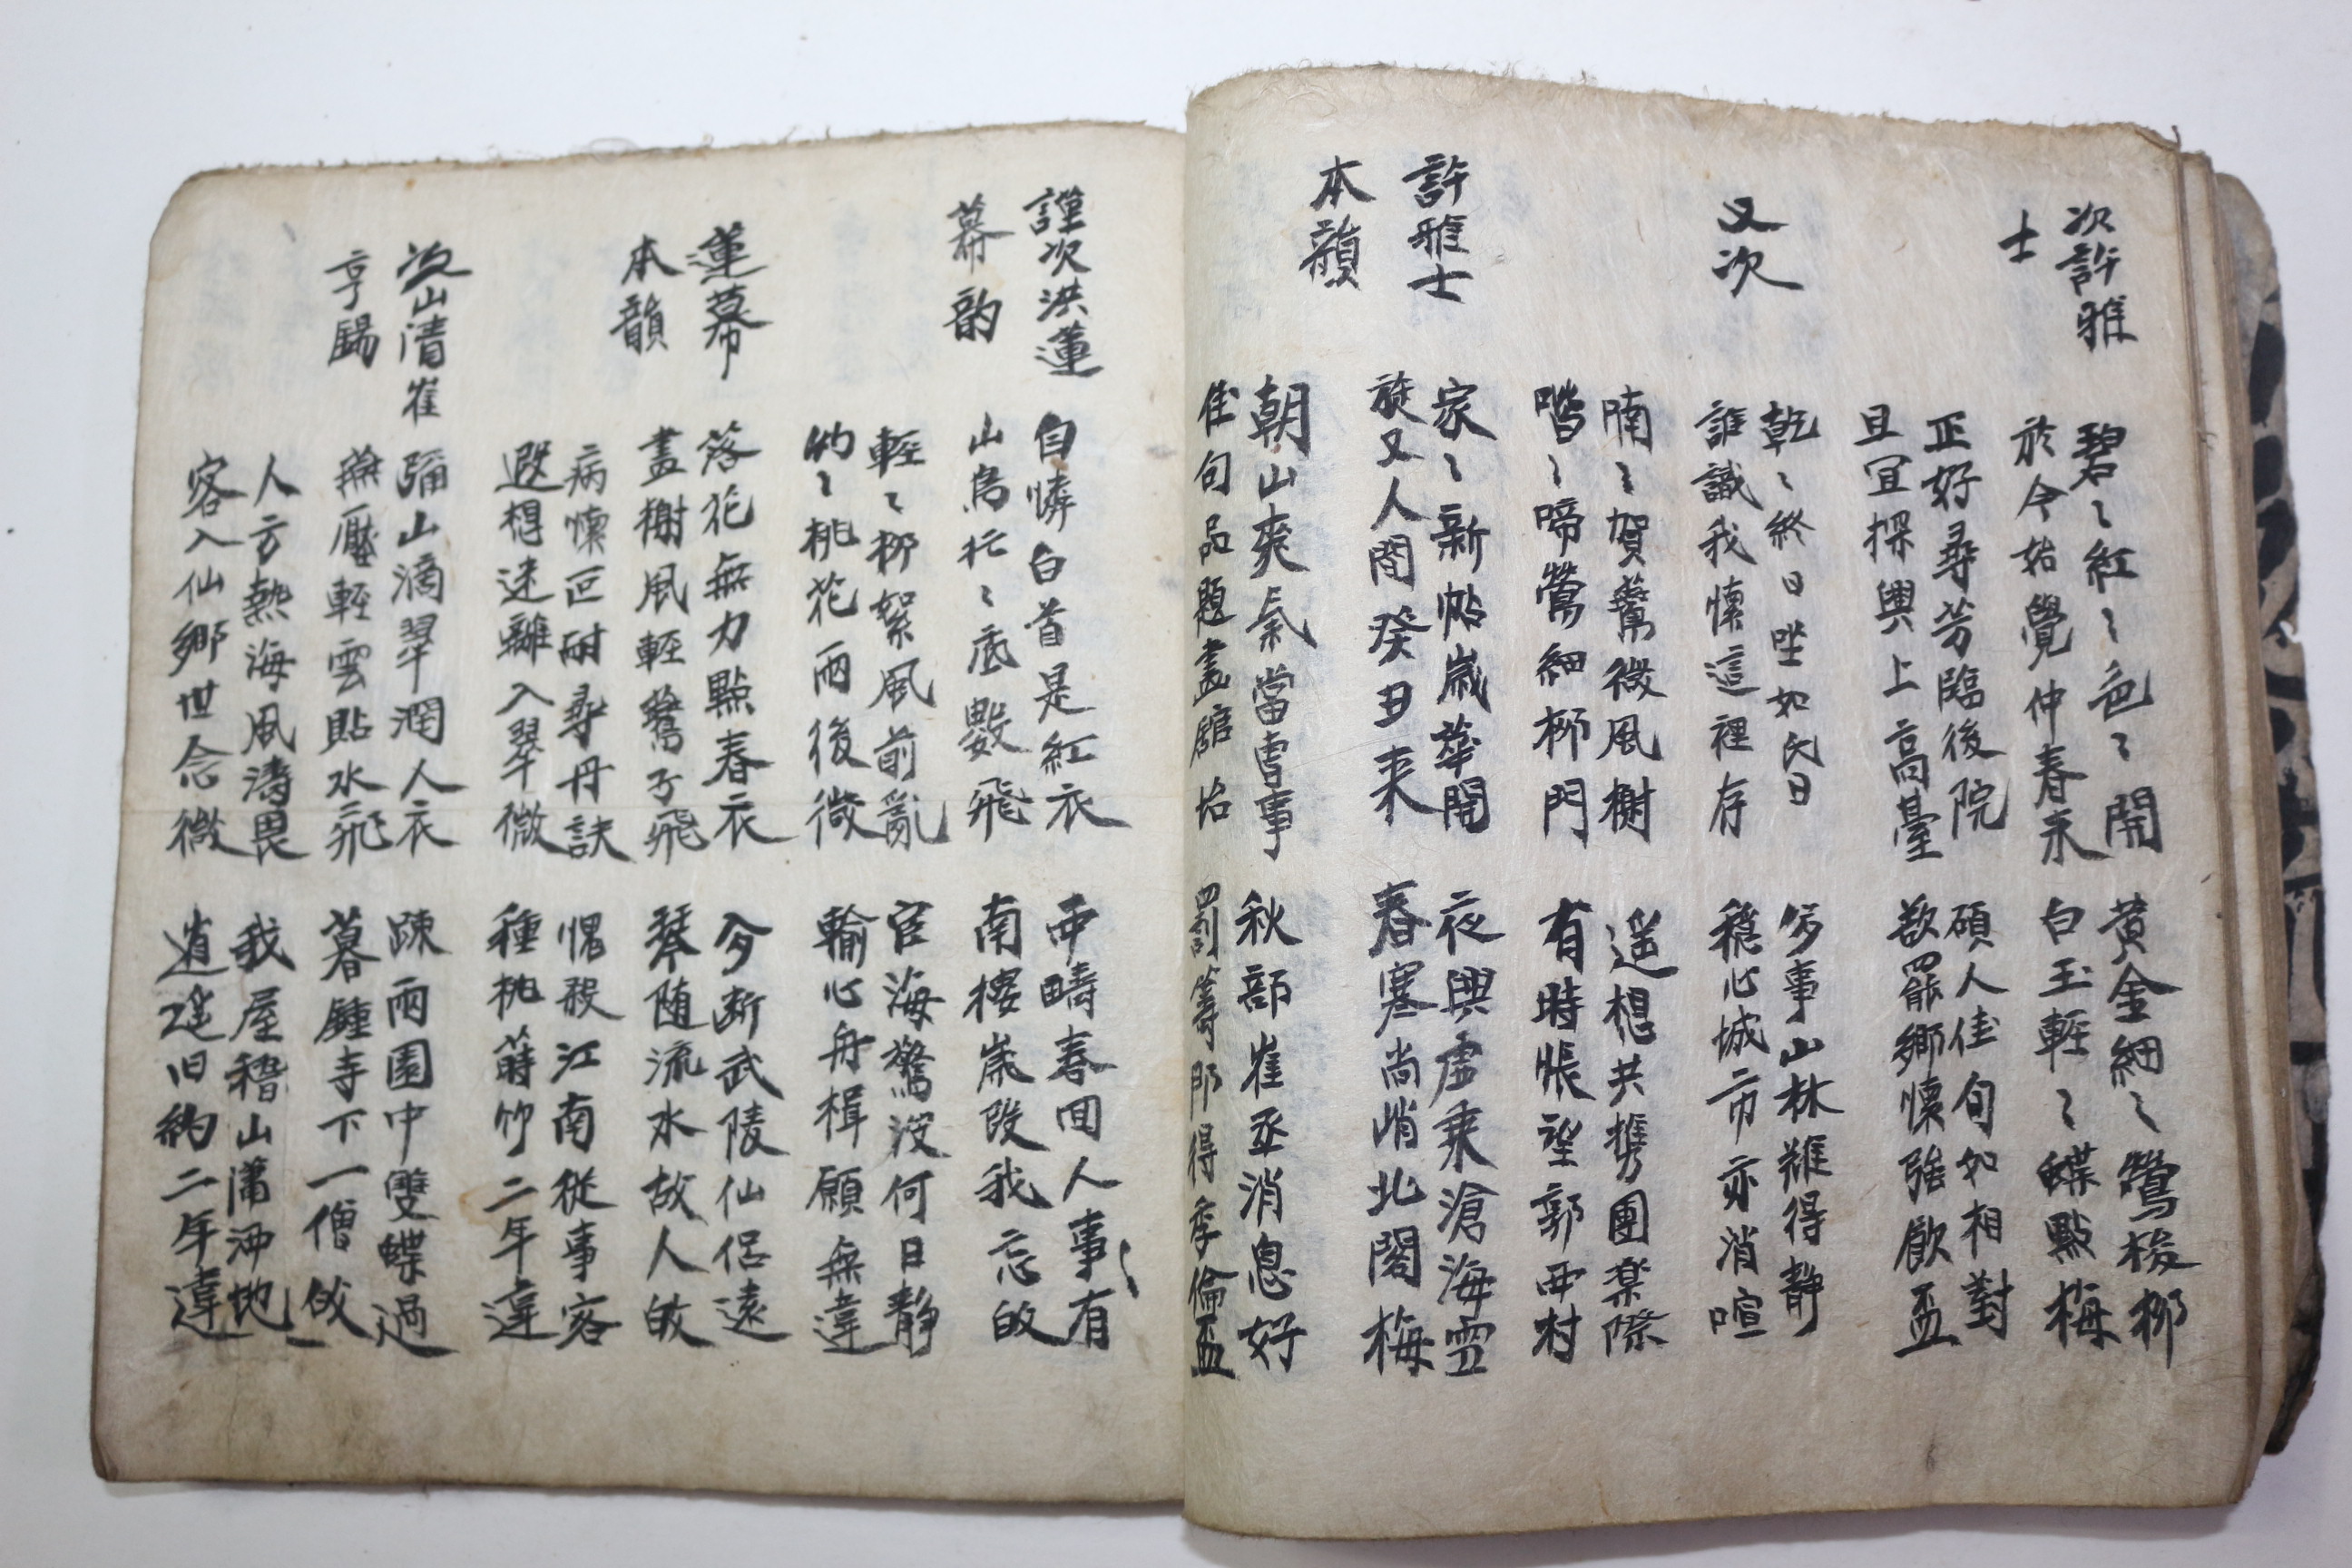 次許雅
士
碧〻紅〻色〻開
於今始覺仲春来
黃金細〻鶯梭柳
白玉輕〻蝶點梅
正好尋芳臨後院
且宜探興上高臺
碩人佳句如相對
欲罷鄉懷強飮盃
又次
乾〻終日坐如昏
誰識我懷這裡存
多事山林難得靜
穩心城市亦消喧
喃〻賀鷰微風榭
喈〻啼鶯細柳門
遥想共携團楽際
有時悵望郭西村
許雅士
本韻
家〻新帖歲華開
旋又人間癸丑来
夜興虛乘滄海雪
春寒尚峭北閣梅
朝山爽氣當曺事
佳句品題盡舘坮
秋部崔丞消息好
罰籌那得季倫盃
謹次洪蓮
幕韵
自憐白首是紅衣
山鳥忙〻底數飛
西疇春回人事有
南樓歲改我忘皈
輕〻柳絮風前亂
灼〻桃花雨後微
宦海驚沒何日靜
輸心舟楫願無違
蓮幕
本韻
落花無力點春衣
盡榭風輕鷰子飛
今斷武陵仙侶遠
琴随流水故人皈
病懷叵耐尋丹訣
遐想迷離入翠微
愧殺江南從事客
種桃蒔竹二年違
次山清崔
亨錫
彌山滴翠潤人衣
無壓輕雲貼水飛
疎雨園中雙蝶過
暮鍾寺下一僧皈
人方熱海風濤畏
客入仙鄉世念微
我屋稽山瀟洒地
逍遥旧約二年違